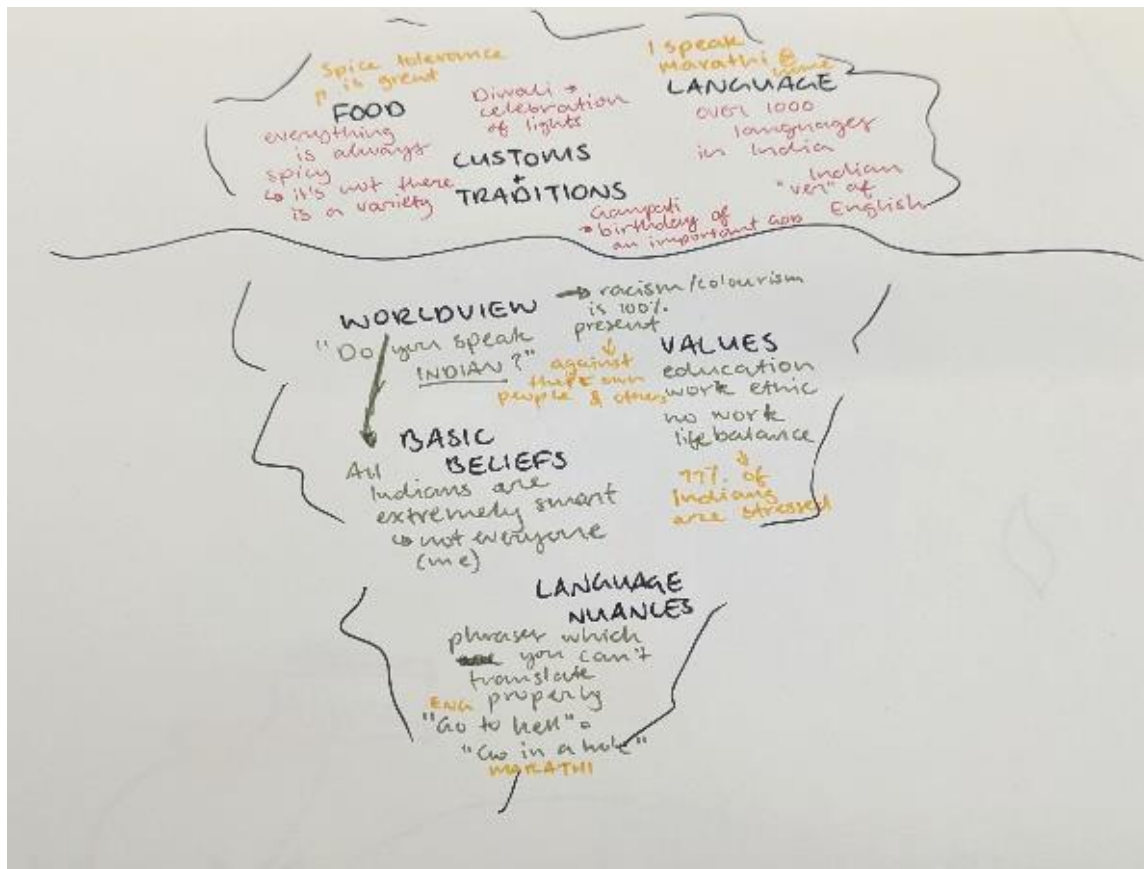 Spice tolerance
p is great
FOOD
everything
is always
spicy
↳ it's not there
is a variety
Diwali →
celebration
of lights
CUSTOMS
+
TRADITIONS
Ganpati
→ birthday of
an important GOD
I speak
Marathi @
home
LANGUAGE
over 1000
languages
in India
Indian
"ver" of
English
WORLDVIEW
"Do you speak
INDIAN?"
→ racism/colourism
is 100%
present
↓
against
their own
people & others
VALUES
education
work ethic
no work
life balance
↓
77% of
Indians
are stressed
BASIC
BELIEFS
All
Indians are
extremely smart
↳ not everyone
(me)
LANGUAGE
NUANCES
phrases which
you can't
translate
properly
ENG
"Go to hell" =
"Go in a hole"
MARATHI